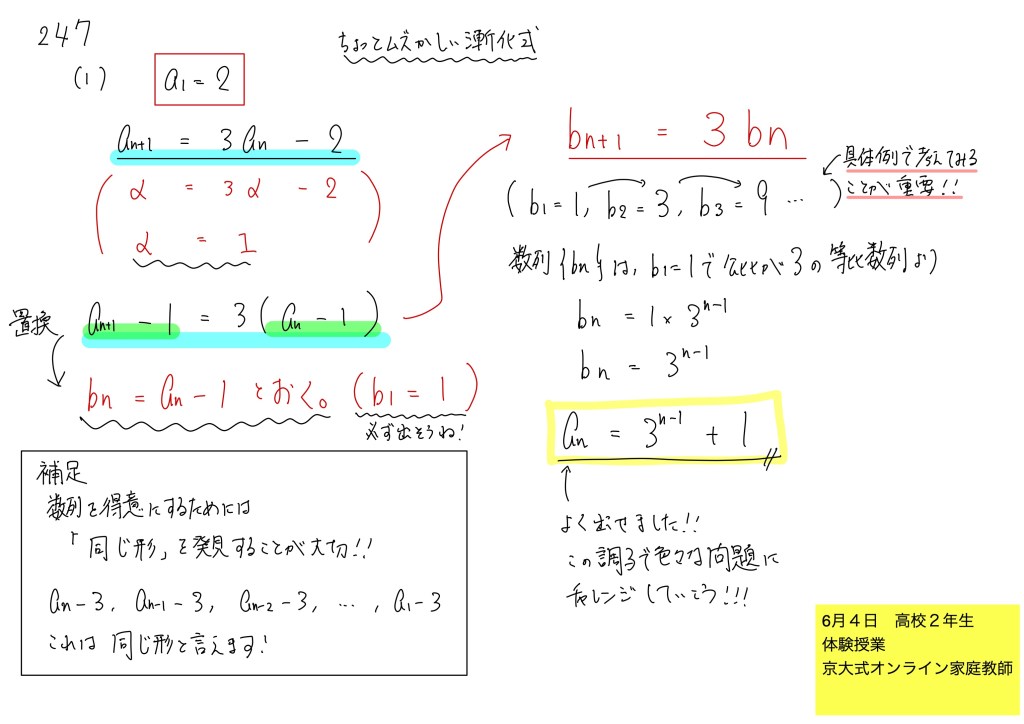 247
ちょっとムズかしい漸化式
(1) a1 = 2
an+1 = 3an - 2
( α = 3α - 2
α = 1 )
an+1 - 1 = 3(an - 1)
置換
bn = an - 1 とおく。(b1 = 1)
必ず出そうね!
補足
数列を得意にするためには
「同じ形」を発見することが大切!!
an-3, an-1-3, an-2-3, …, a1-3
これは 同じ形と言えます!
bn+1 = 3bn
具体例で考えてみる
ことが重要!!
(b1=1, b2=3, b3=9 … )
数列{bn}は、b1=1で公比が3の等比数列より
bn = 1×3^n-1
bn = 3^n-1
an = 3^n-1 + 1
よく出せました!!
この調子で色々な問題に
チャレンジしていこう!!!
6月4日 高校2年生
体験授業
京大式オンライン家庭教師